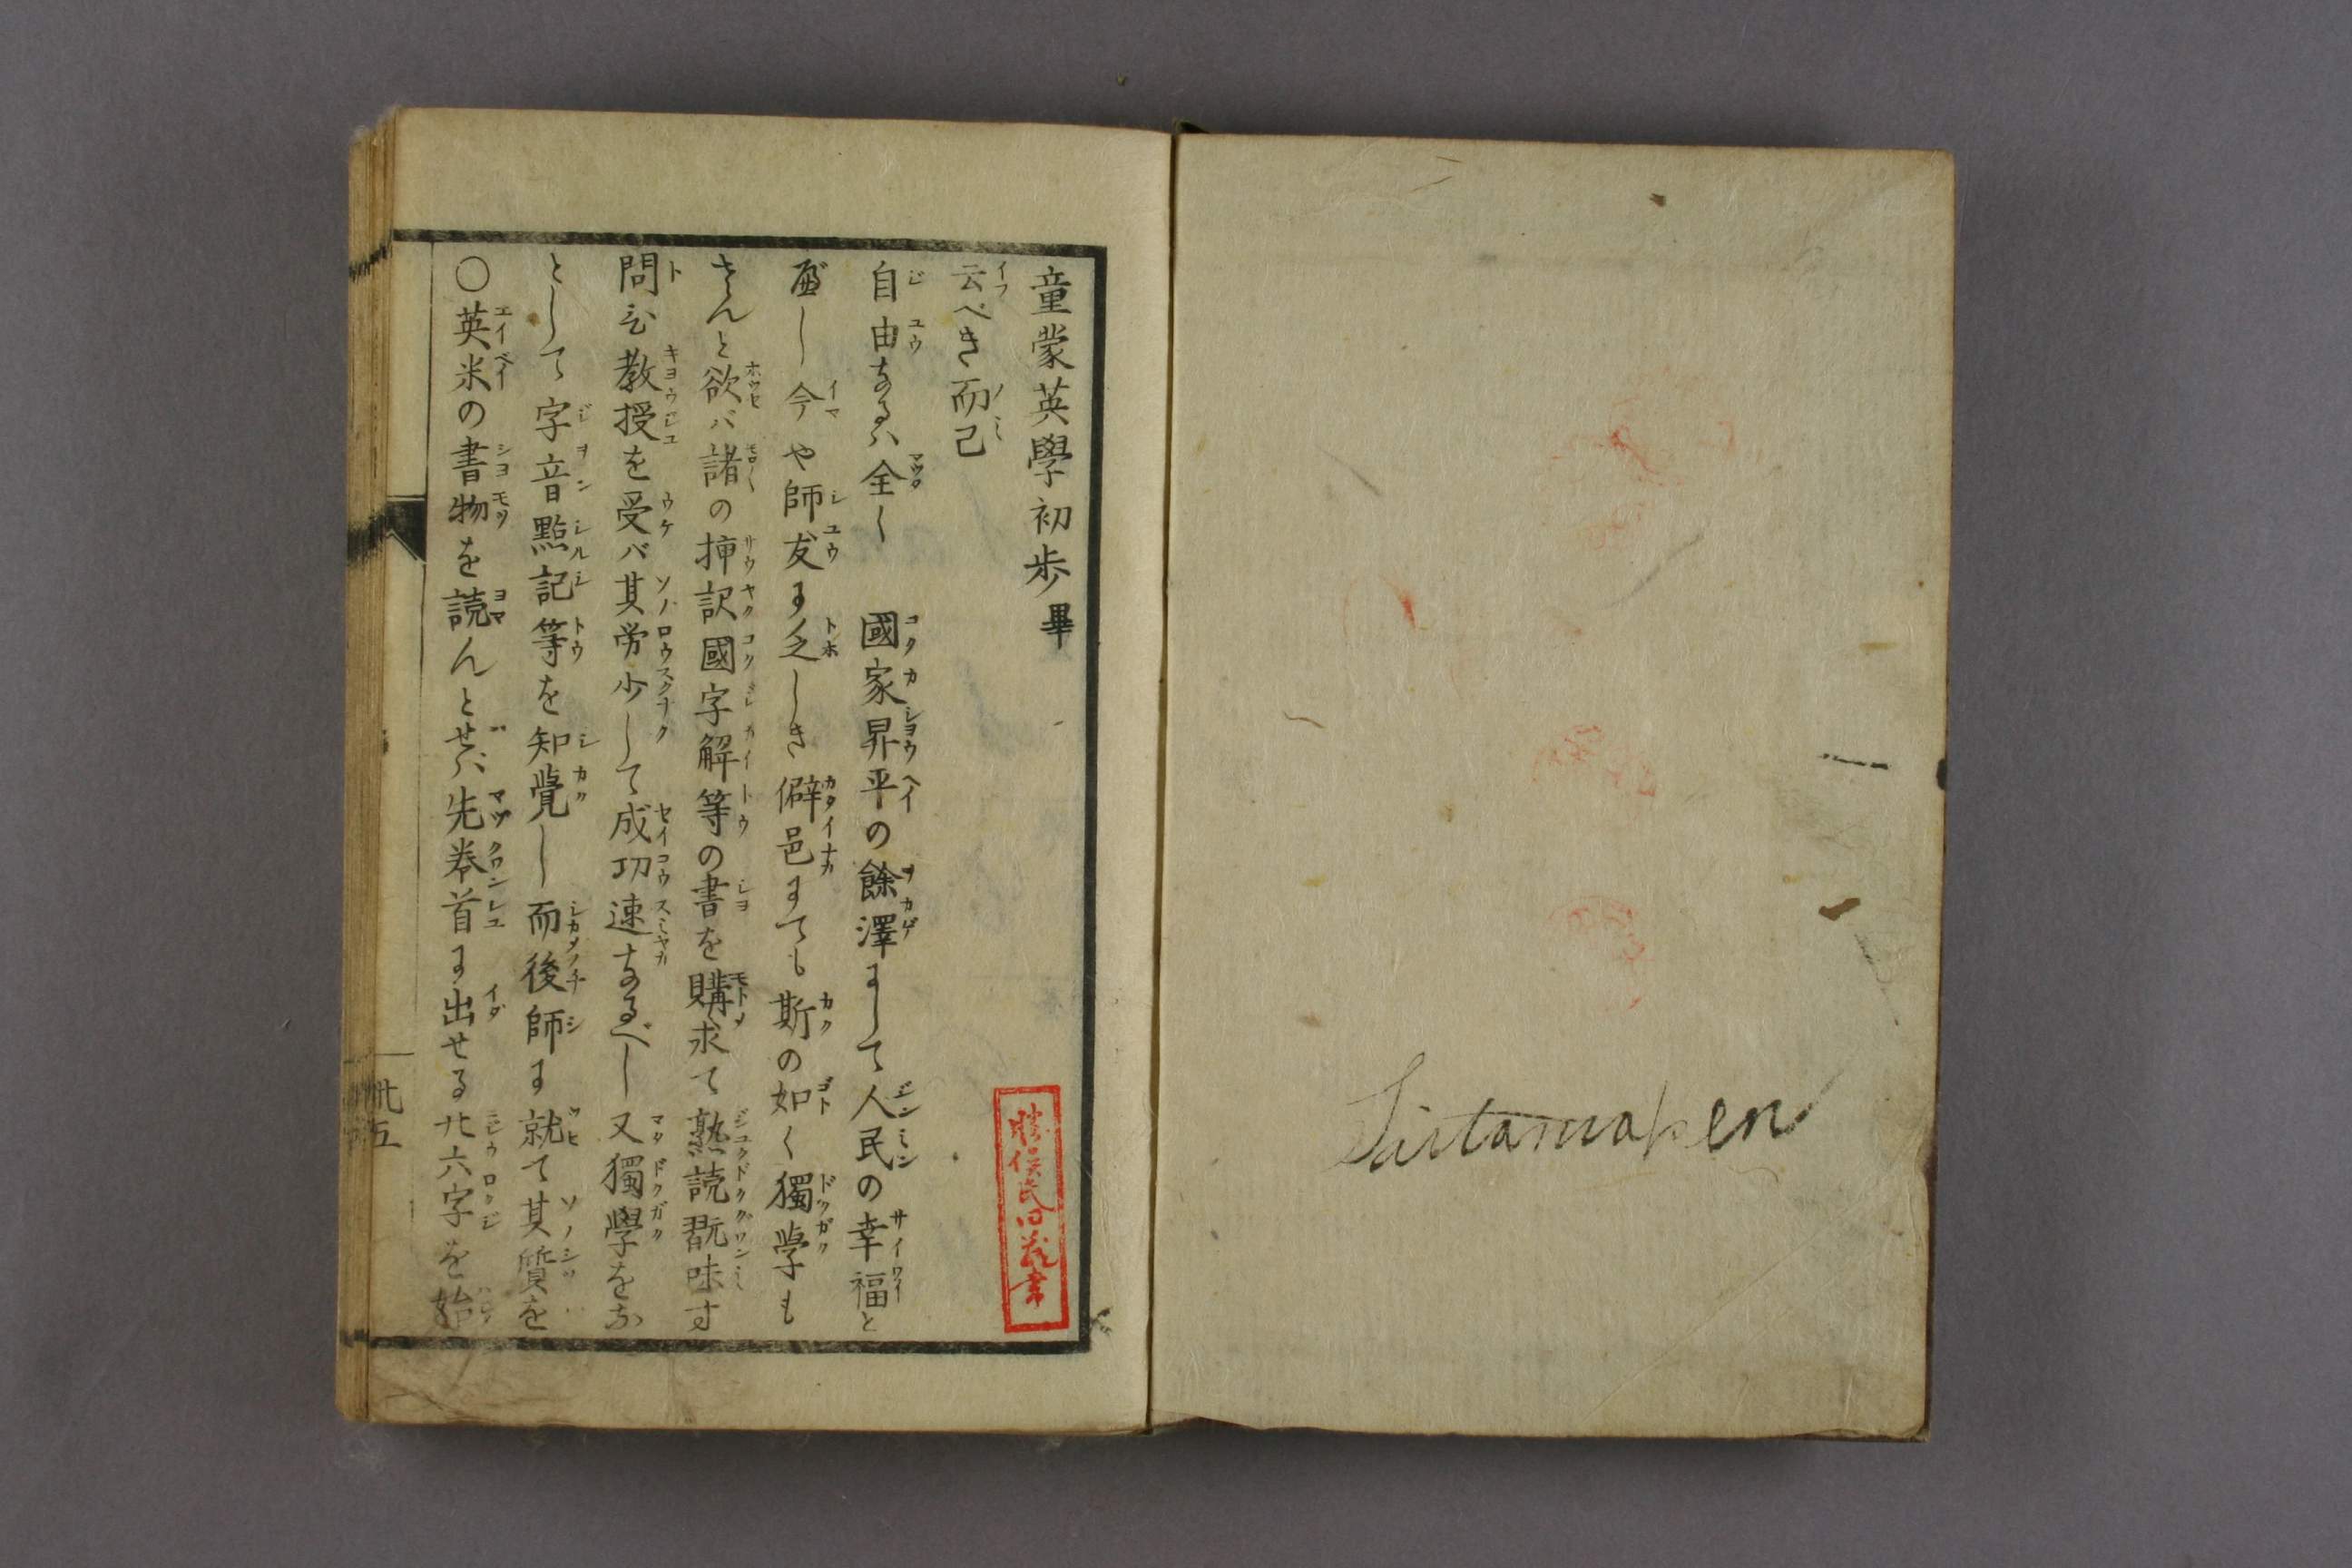 ○英米の書物を読んとせバ先巻首に出せる廿六字を始
として字音點記等を知覺し而後師に就て其質を
問ひ教授を受バ其労少して成功速なるべし又獨學をな
さんと欲バ諸の挿訳國字解等の書を購求て熟読翫味す
べし今や師友に乏しき僻邑にても斯の如く獨学も
自由なるハ全く 國家昇平の餘澤にして人民の幸福と
云べき而已
童蒙英學初歩畢